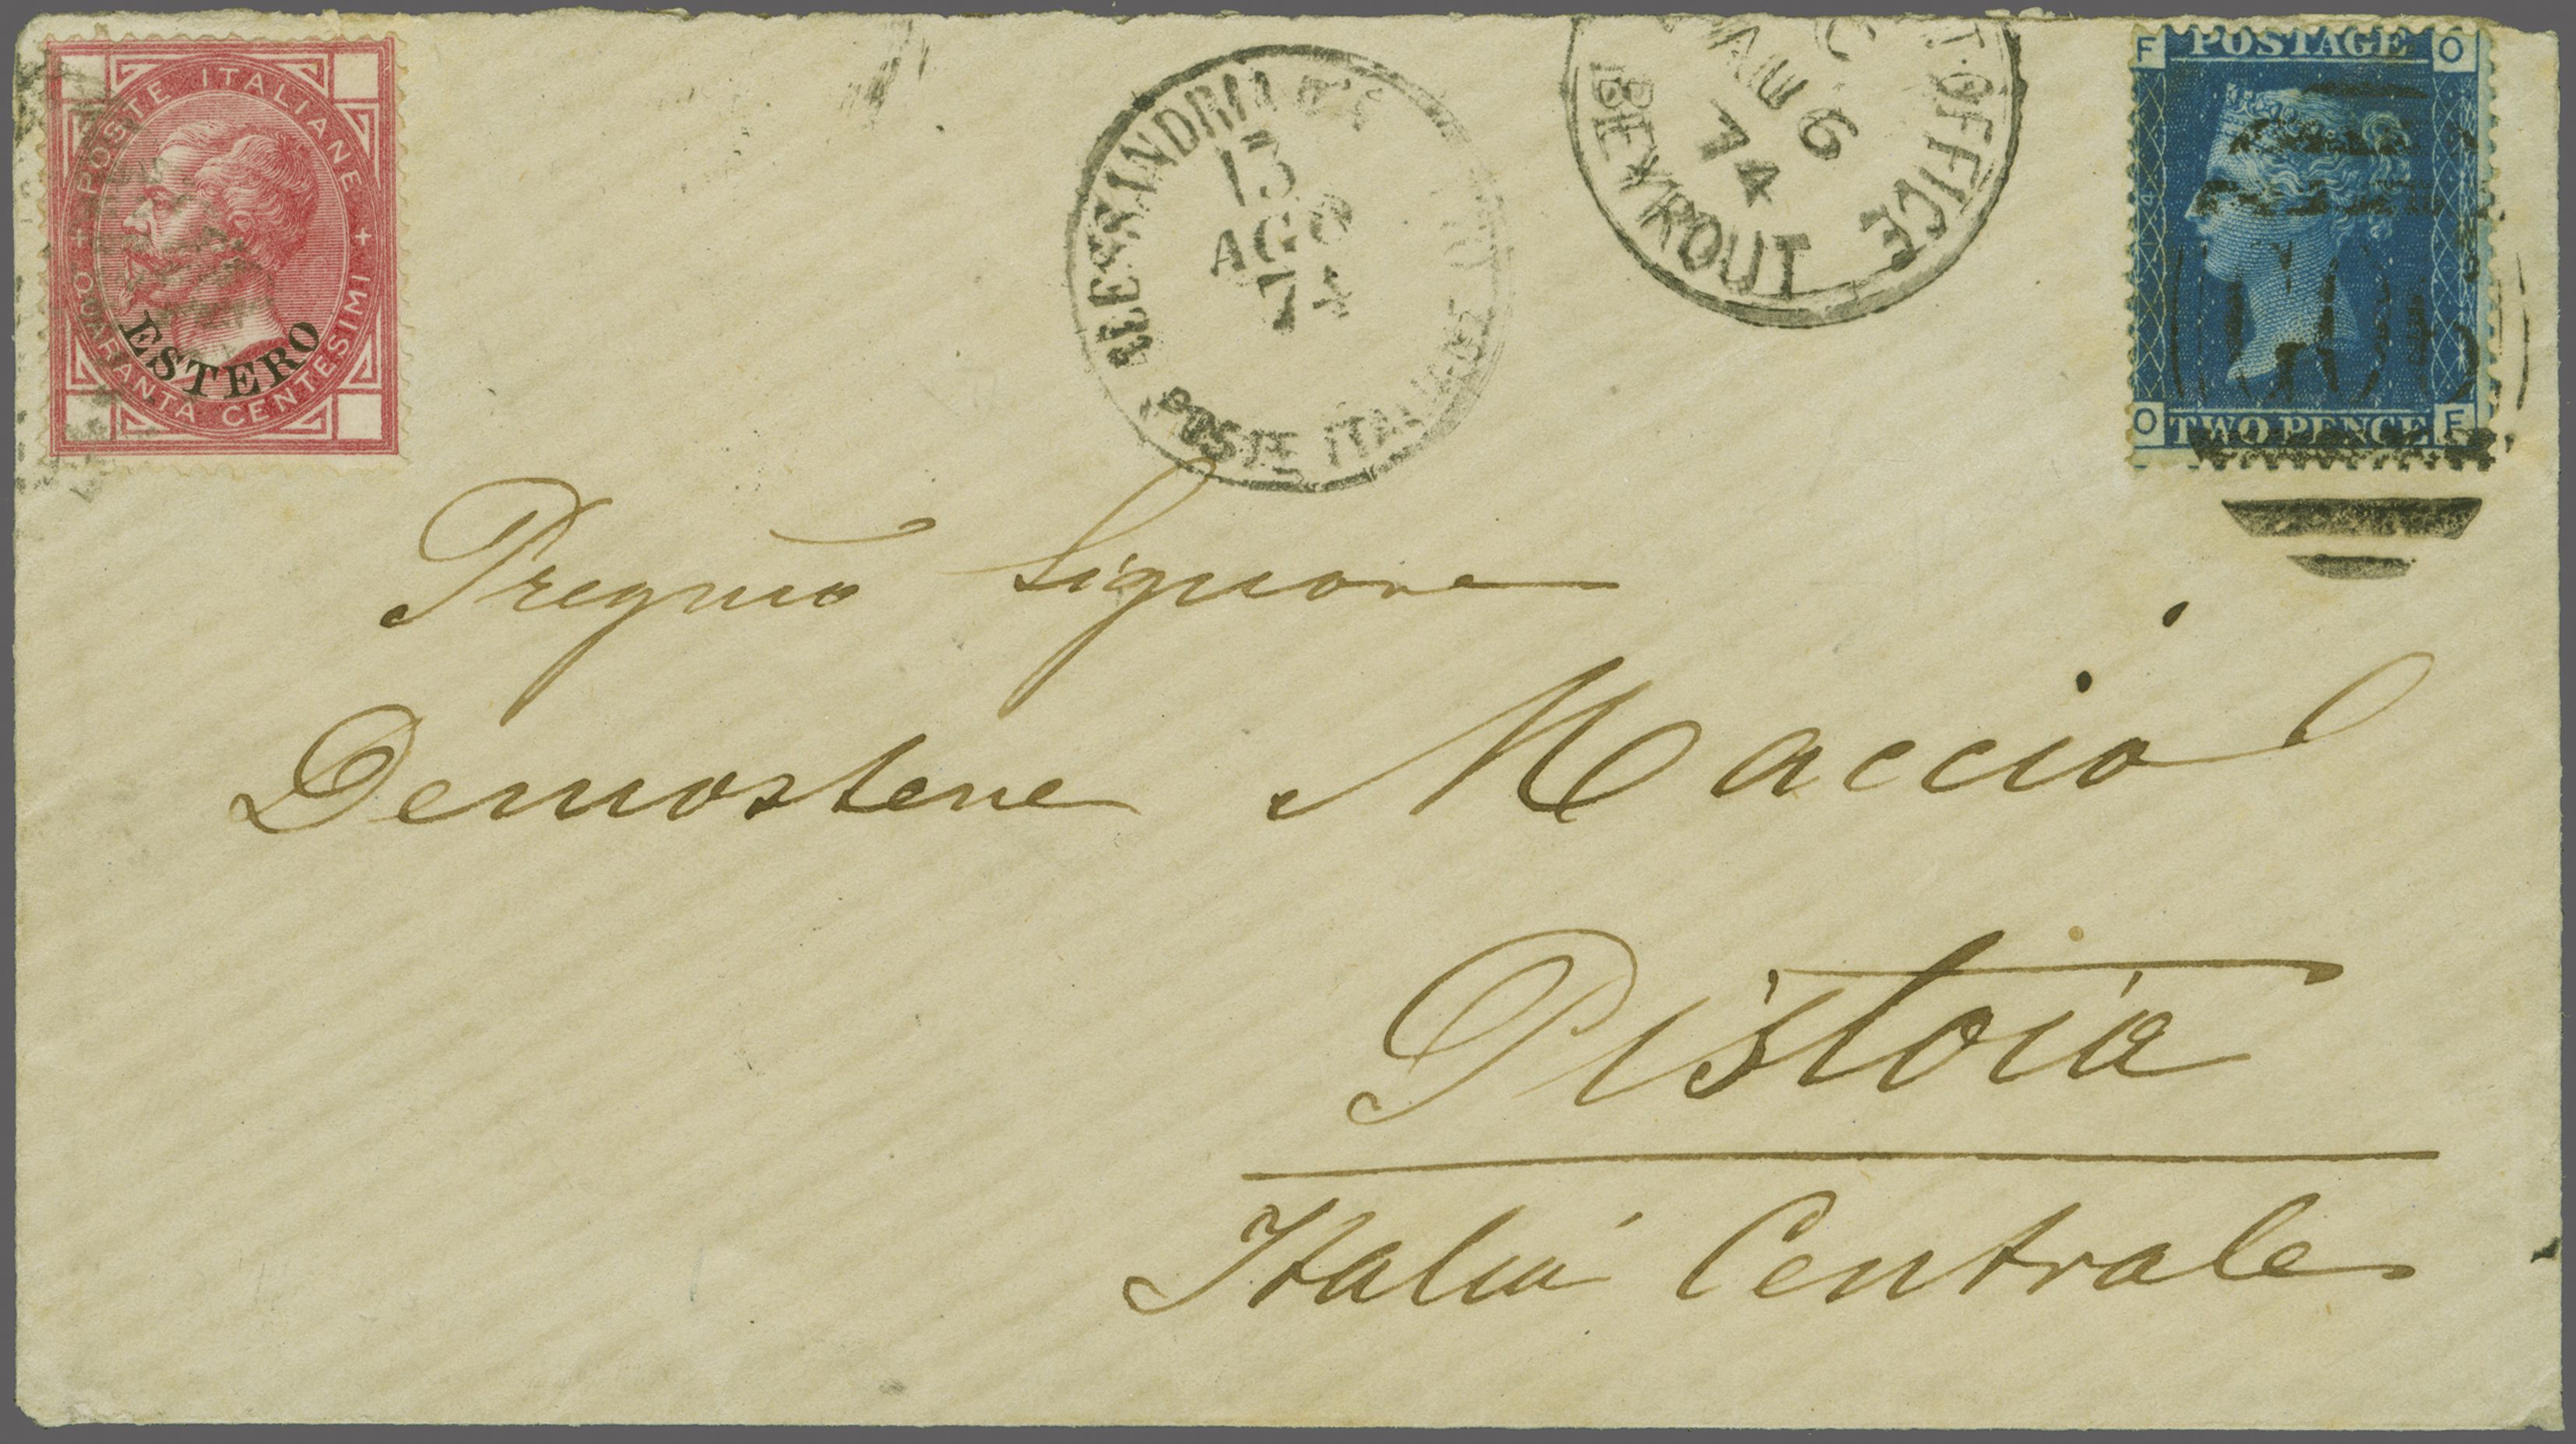 POSTE ITALIANE
QUARANTA CENTESIMI
ESTERO
ALESSANDRIA
13
AGO
74
POSTE ITALIANE
T. OFFICE
BEYROUT
C
AU 6
74
F POSTAGE O
G06
O TWO PENCE F
Pregmo Signore
Demostene Macciò
Pistoia
Italia Centrale